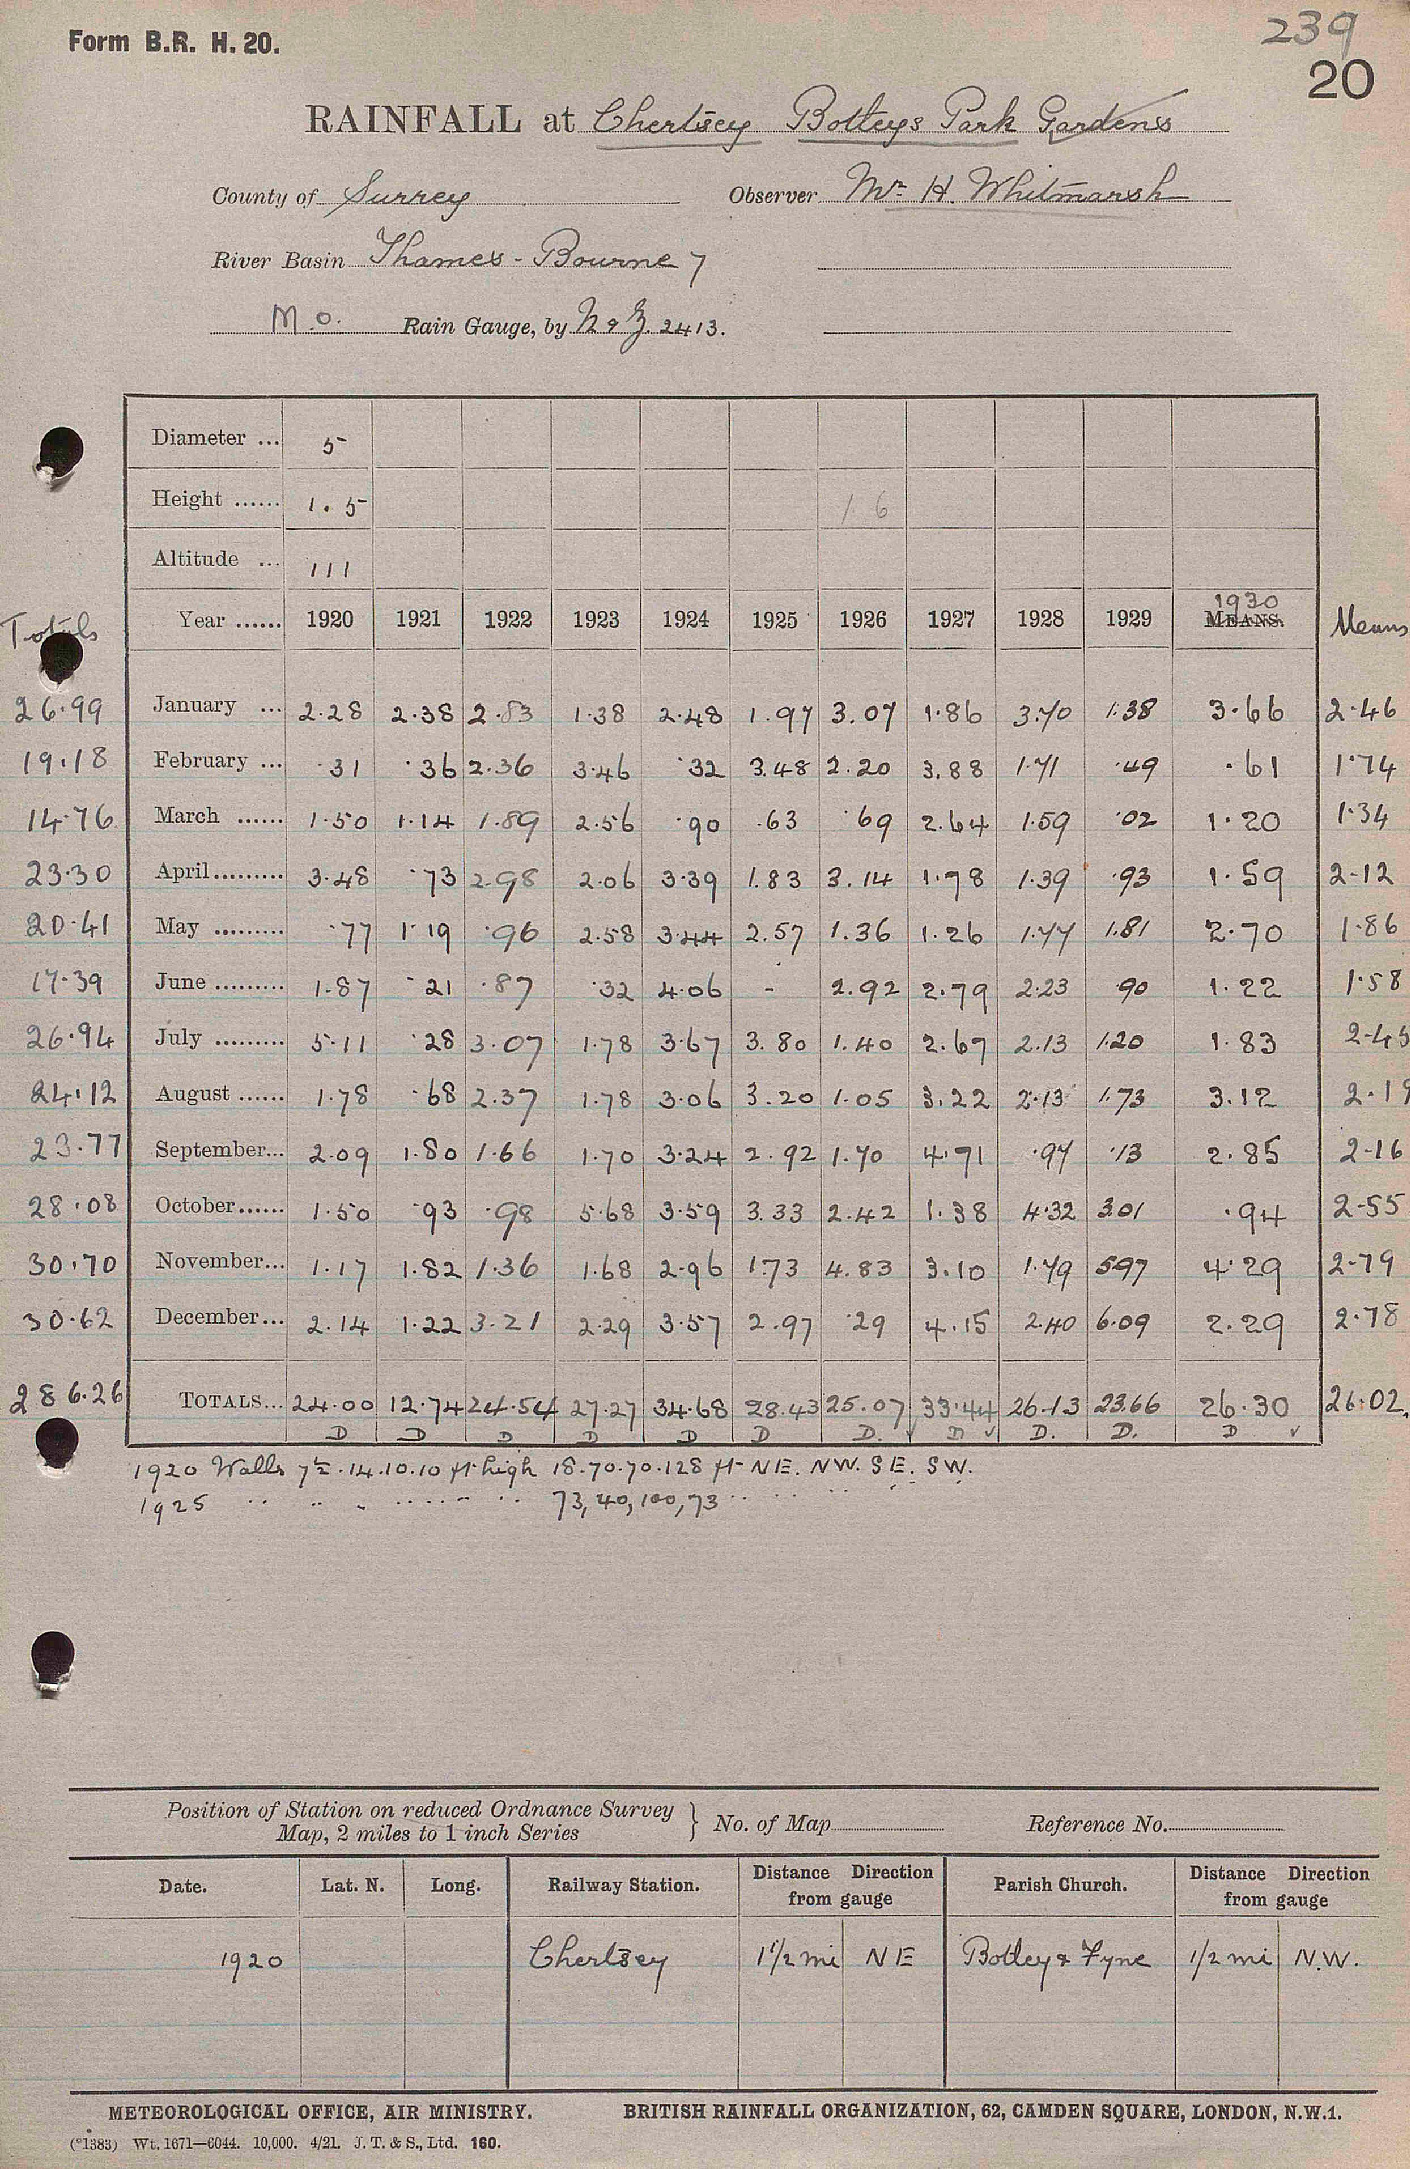 Form B.R. H. 20.
239
20
RAINFALL at Chertsey Botleys Park Gardens
County of Surrey Observer Mr. H. Whitmarsh
River Basin Thames - Bourne 7
M.O. Rain Gauge, by N & Z. 2413.
Diameter ... 5
Height ...... 1.5 1 6
Altitude ... 111
1930
Totals Year ...... 1920 1921 1922 1923 1924 1925 1926 1927 1928 1929 MEANS. Means
26.99 January ... 2.28 2.38 2.53 1.38 2.48 1.97 3.07 1.86 3.70 1.38 3.66 2.46
19.18 February ... .31 .36 2.36 3.46 .32 3.48 2.20 3.88 1.71 .49 .61 1.74
14.76 March ...... 1.50 1.14 1.89 2.56 .90 .63 .69 2.64 1.59 .02 1.20 1.34
23.30 April ......... 3.48 .73 2.98 2.06 3.39 1.83 3.14 1.78 1.39 .93 1.59 2.12
20.41 May ......... .77 1.19 .96 2.58 3.44 2.57 1.36 1.26 1.77 1.81 2.70 1.86
17.39 June ......... 1.87 .21 .87 .32 4.06 - 2.92 2.79 2.23 .90 1.22 1.58
26.94 July ......... 5.11 .28 3.07 1.78 3.67 3.80 1.40 2.67 2.13 1.20 1.83 2.45
24.12 August ...... 1.78 .68 2.37 1.78 3.06 3.20 1.05 3.22 2.13 1.73 3.12 2.19
23.77 September... 2.09 1.80 1.66 1.70 3.24 2.92 1.70 4.71 .97 .13 2.85 2.16
28.08 October...... 1.50 .93 .98 5.68 3.59 3.33 2.42 1.38 4.32 3.01 .94 2.55
30.70 November... 1.17 1.82 1.36 1.68 2.96 1.73 4.83 3.10 1.79 5.97 4.29 2.79
30.62 December... 2.14 1.22 3.21 2.29 3.57 2.97 .29 4.15 2.40 6.09 2.29 2.78
286.26 TOTALS... 24.00 12.74 24.54 27.27 34.68 28.43 25.07 33.44 26.13 23.66 26.30 26.02.
D D D D D D D. D ✓ D. D. D ✓
1920 Walls 7½.14.10.10 ft high 18.70.70.128 ft NE. NW. SE. SW.
1925 .. .. .. .. .. .. .. 73, 40, 100, 73 .. .. .. ..
Position of Station on reduced Ordnance Survey
Map, 2 miles to 1 inch Series } No. of Map Reference No.
Date. Lat. N. Long. Railway Station. Distance Direction from gauge Parish Church. Distance Direction from gauge
1920 Chertsey 1 1/2 mi NE Botley & Lyne 1/2 mi N.W.
METEOROLOGICAL OFFICE, AIR MINISTRY. BRITISH RAINFALL ORGANIZATION, 62, CAMDEN SQUARE, LONDON, N.W.1.
(*1383) Wt. 1671—6044. 10,000. 4/21. J. T. & S., Ltd. 160.